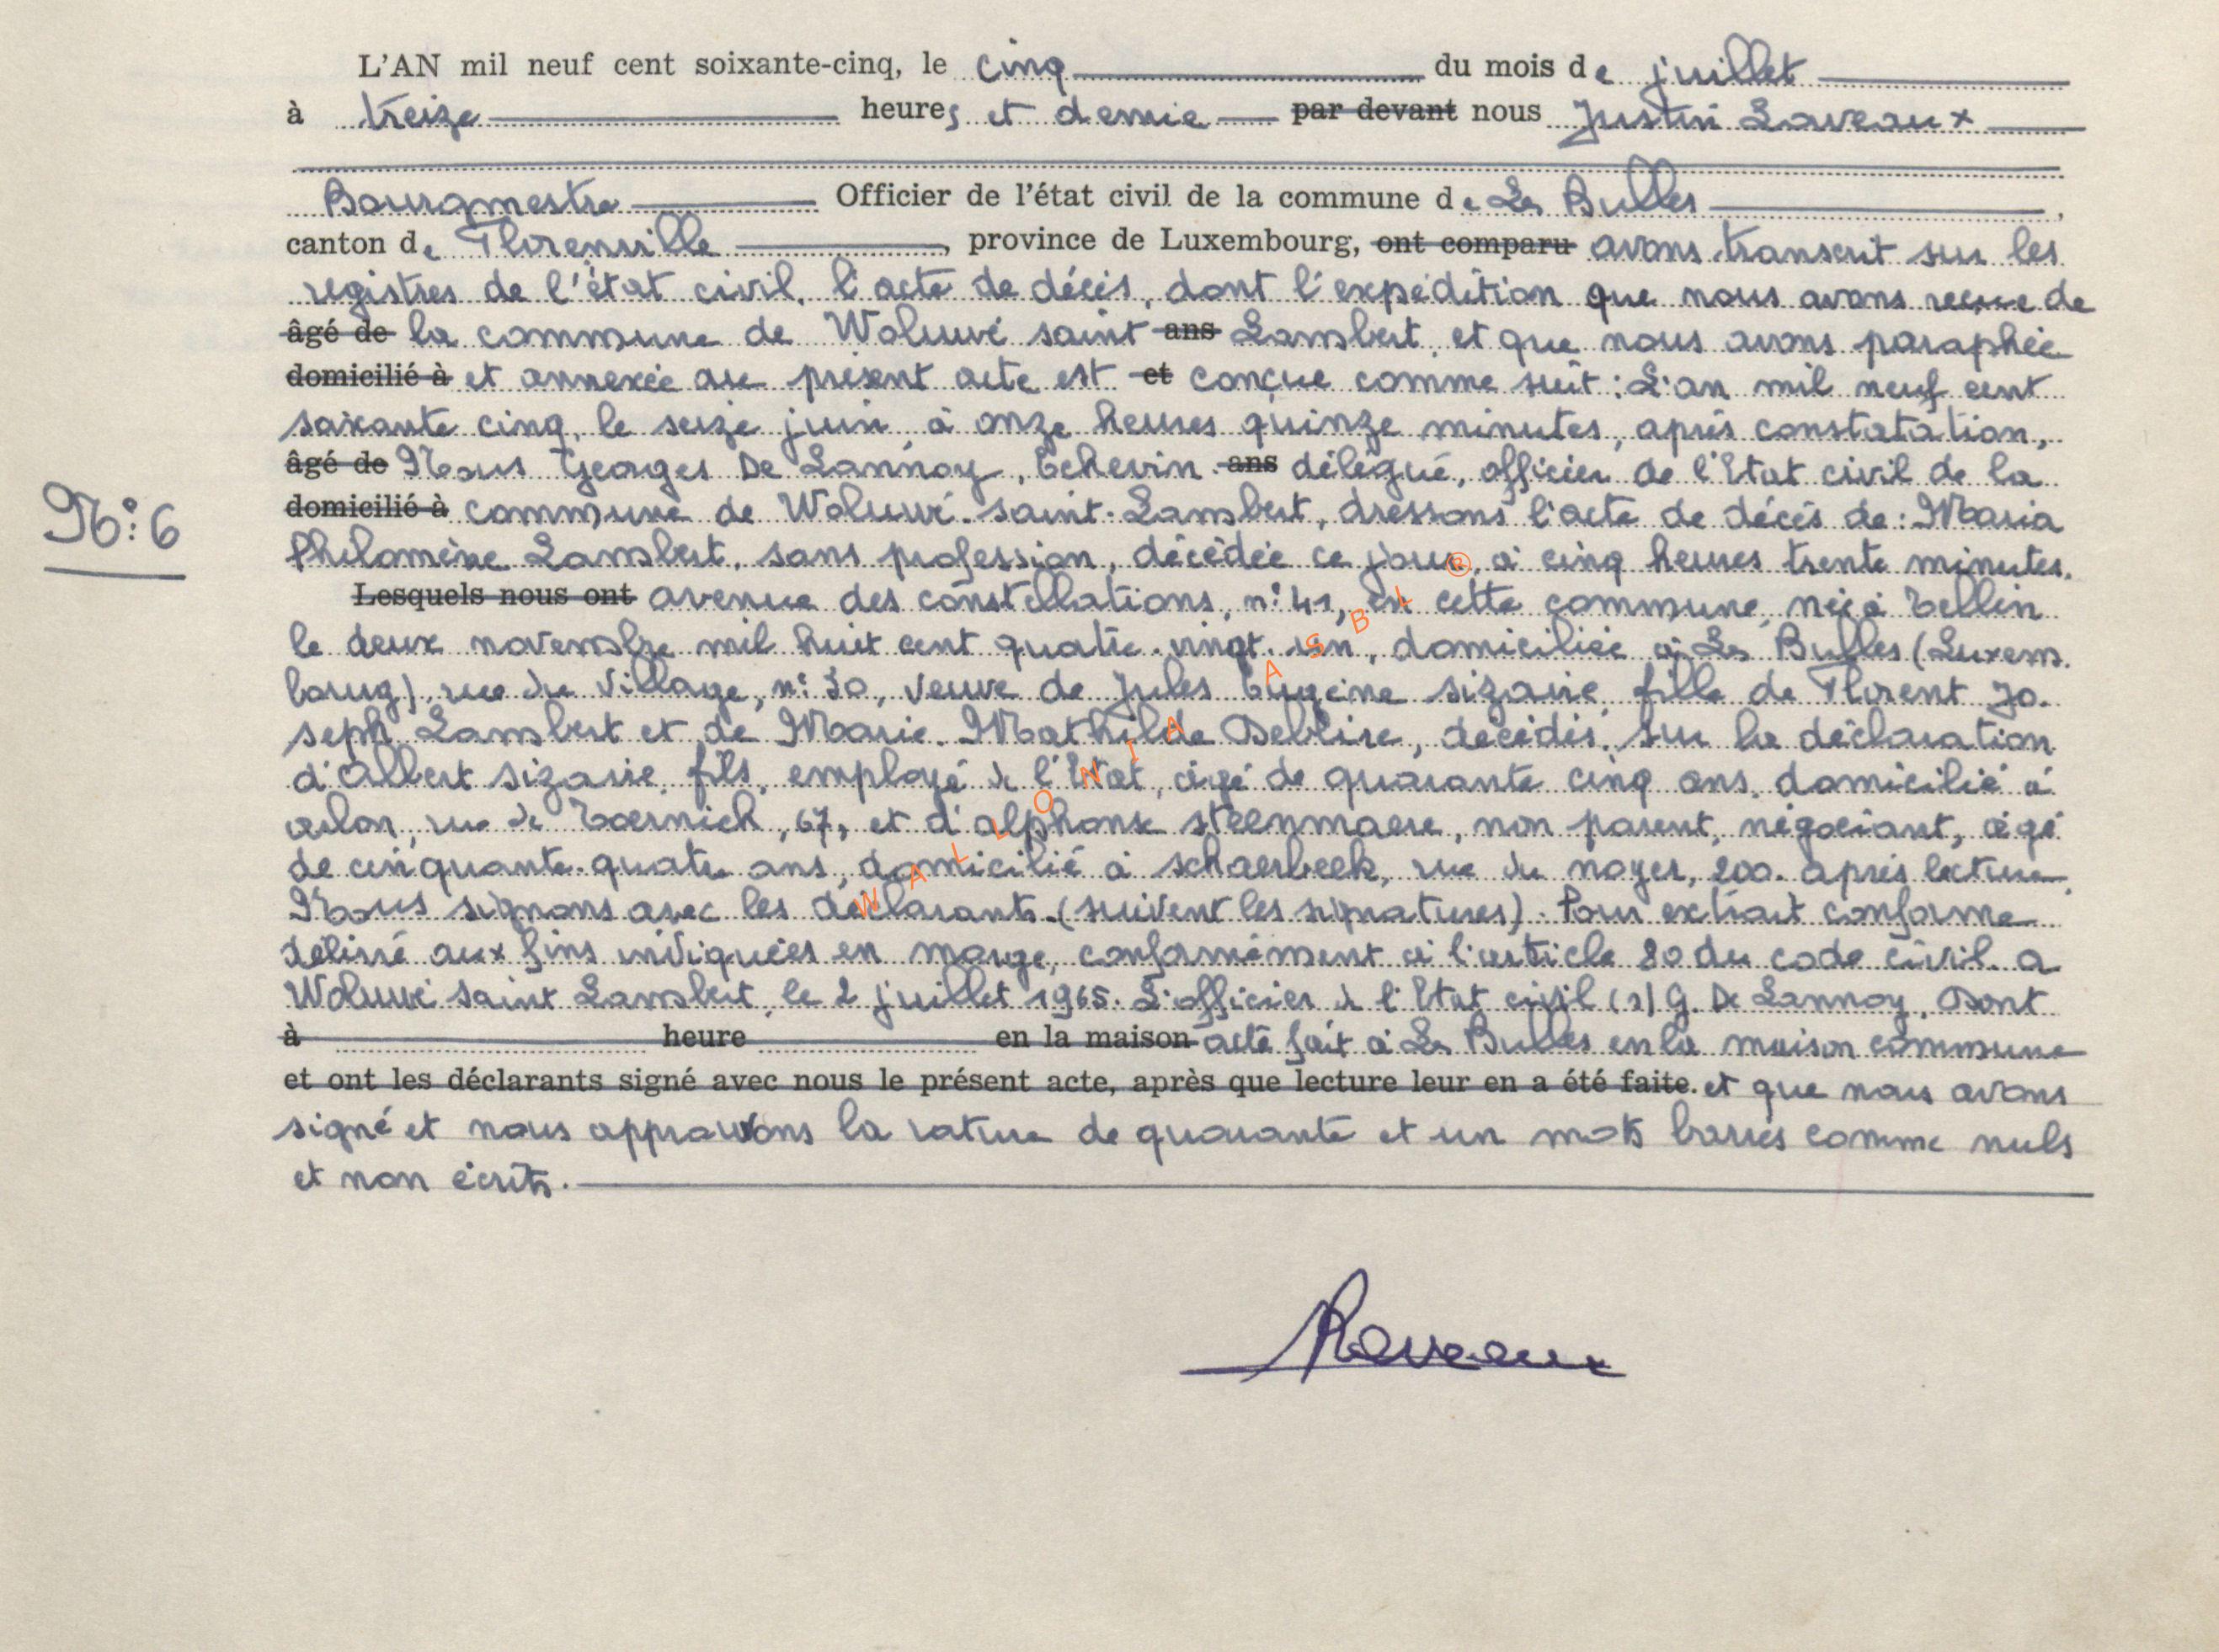 L'AN mil neuf cent soixante-cinq, le cinq du mois de juillet
à treize heures et demie par devant nous Justin Laveaux
Bourgmestre Officier de l'état civil de la commune de Les Bulles,
canton de Florenville, province de Luxembourg, ont comparu avons transcrit sur les
registres de l'état civil, l'acte de décès, dont l'expédition que nous avons reçue de
âgé de la commune de Woluwé saint ans Lambert, et que nous avons paraphée
domicilié à et annexée au présent acte est et conçue comme suit : L'an mil neuf cent
soixante cinq, le seize juin à onze heures quinze minutes, après constatation,
âgé de Nous Georges De Lannoy, Echevin ans délégué, officier de l'Etat civil de la
domicilié à commune de Woluwé-saint-Lambert, dressons l'acte de décès de : Maria
N° 6
Philomène Lambert, sans profession, décédée ce jour, à cinq heures trente minutes,
Lesquels nous ont avenue des constellations, n° 41, en cette commune, née à Tellin
le deux novembre mil huit cent quatre-vingt-un, domiciliée à Les Bulles (Luxem-
bourg), rue du Village, n° 30, veuve de Jules Eugène Sizaire, fille de Florent Jo-
seph Lambert et de Marie-Mathilde Deblire, décédés. Sur la déclaration
d'Albert Sizaire, fils, employé de l'Etat, âgé de quarante cinq ans, domicilié à
Arlon, rue de Toernich, 67, et d'Alphonse Steenmaere, non parent, négociant, âgé
de cinquante-quatre ans, domicilié à Schaerbeek, rue du noyer, 200. Après lecture,
Nous signons avec les déclarants. (suivent les signatures). Pour extrait conforme
délivré aux fins indiquées en marge, conformément à l'article 80 du code civil. A
Woluwé saint Lambert, le 2 juillet 1965. L'officier de l'Etat civil (s) G. De Lannoy. Dont
à heure en la maison acte fait à Les Bulles en la maison commune
et ont les déclarants signé avec nous le présent acte, après que lecture leur en a été faite. et que nous avons
signé et nous approuvons la rature de quarante et un mots barrés comme nuls
et non écrits.
Laveaux
WALLONIA ASBL ®